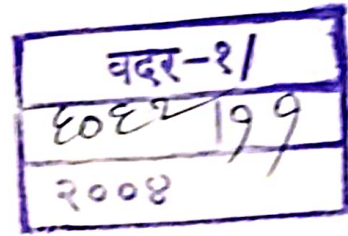 वदर-१/
६०६२/११
२००४